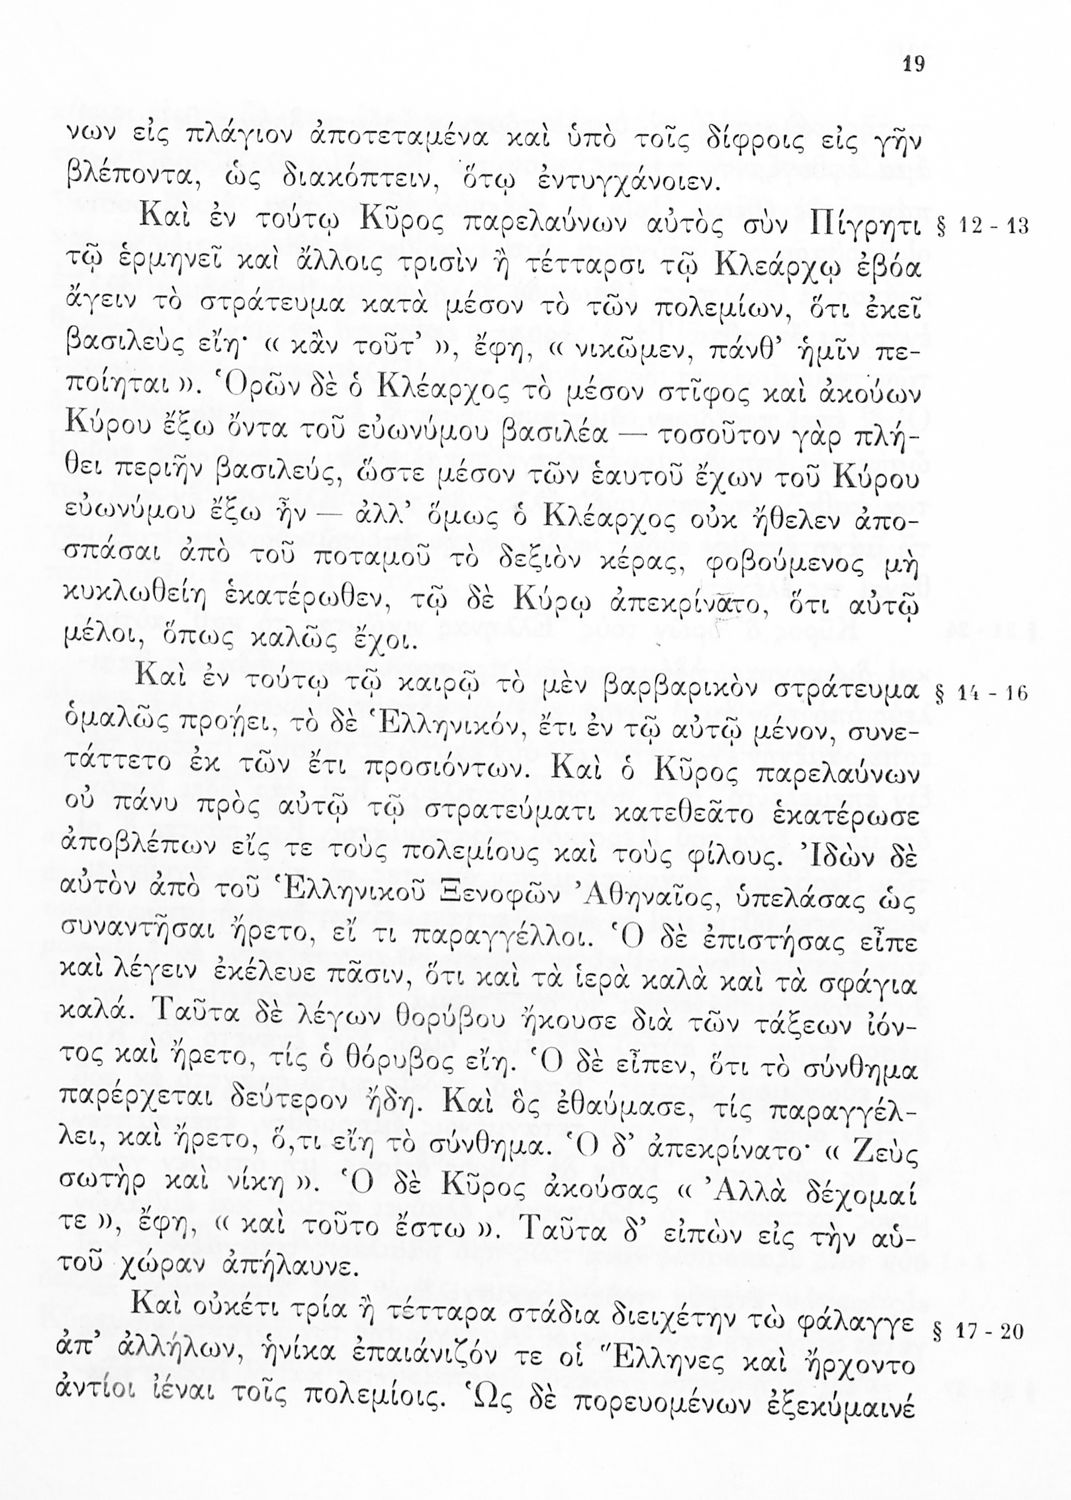 19
νων εἰς πλάγιον ἀποτεταμένα καὶ ὑπὸ τοῖς δίφροις εἰς γῆν
βλέποντα, ὡς διακόπτειν, ὅτῳ ἐντυγχάνοιεν.
Καὶ ἐν τούτῳ Κῦρος παρελαύνων αὐτὸς σὺν Πίγρητι § 12 - 13
τῷ ἑρμηνεῖ καὶ ἄλλοις τρισὶν ἢ τέτταρσι τῷ Κλεάρχῳ ἐβόα
ἄγειν τὸ στράτευμα κατὰ μέσον τὸ τῶν πολεμίων, ὅτι ἐκεῖ
βασιλεὺς εἴη· « κἂν τοῦτ’ », ἔφη, « νικῶμεν, πάνθ’ ἡμῖν πε-
ποίηται ». Ὁρῶν δὲ ὁ Κλέαρχος τὸ μέσον στῖφος καὶ ἀκούων
Κύρου ἔξω ὄντα τοῦ εὐωνύμου βασιλέα — τοσοῦτον γὰρ πλή-
θει περιῆν βασιλεύς, ὥστε μέσον τῶν ἑαυτοῦ ἔχων τοῦ Κύρου
εὐωνύμου ἔξω ἦν — ἀλλ’ ὅμως ὁ Κλέαρχος οὐκ ἤθελεν ἀπο-
σπάσαι ἀπὸ τοῦ ποταμοῦ τὸ δεξιὸν κέρας, φοβούμενος μὴ
κυκλωθείη ἑκατέρωθεν, τῷ δὲ Κύρῳ ἀπεκρίνατο, ὅτι αὐτῷ
μέλοι, ὅπως καλῶς ἔχοι.
Καὶ ἐν τούτῳ τῷ καιρῷ τὸ μὲν βαρβαρικὸν στράτευμα § 14 - 16
ὁμαλῶς προῄει, τὸ δὲ Ἑλληνικόν, ἔτι ἐν τῷ αὐτῷ μένον, συνε-
τάττετο ἐκ τῶν ἔτι προσιόντων. Καὶ ὁ Κῦρος παρελαύνων
οὐ πάνυ πρὸς αὐτῷ τῷ στρατεύματι κατεθεᾶτο ἑκατέρωσε
ἀποβλέπων εἴς τε τοὺς πολεμίους καὶ τοὺς φίλους. Ἰδὼν δὲ
αὐτὸν ἀπὸ τοῦ Ἑλληνικοῦ Ξενοφῶν Ἀθηναῖος, ὑπελάσας ὡς
συναντῆσαι ἤρετο, εἴ τι παραγγέλλοι. Ὁ δὲ ἐπιστήσας εἶπε
καὶ λέγειν ἐκέλευε πᾶσιν, ὅτι καὶ τὰ ἱερὰ καλὰ καὶ τὰ σφάγια
καλά. Ταῦτα δὲ λέγων θορύβου ἤκουσε διὰ τῶν τάξεων ἰόν-
τος καὶ ἤρετο, τίς ὁ θόρυβος εἴη. Ὁ δὲ εἶπεν, ὅτι τὸ σύνθημα
παρέρχεται δεύτερον ἤδη. Καὶ ὃς ἐθαύμασε, τίς παραγγέλ-
λει, καὶ ἤρετο, ὅ,τι εἴη τὸ σύνθημα. Ὁ δ’ ἀπεκρίνατο· « Ζεὺς
σωτὴρ καὶ νίκη ». Ὁ δὲ Κῦρος ἀκούσας « Ἀλλὰ δέχομαί
τε », ἔφη, « καὶ τοῦτο ἔστω ». Ταῦτα δ’ εἰπὼν εἰς τὴν αὑ-
τοῦ χώραν ἀπήλαυνε.
Καὶ οὐκέτι τρία ἢ τέτταρα στάδια διειχέτην τὼ φάλαγγε § 17 - 20
ἀπ’ ἀλλήλων, ἡνίκα ἐπαιάνιζόν τε οἱ Ἕλληνες καὶ ἤρχοντο
ἀντίοι ἰέναι τοῖς πολεμίοις. Ὡς δὲ πορευομένων ἐξεκύμαινέ